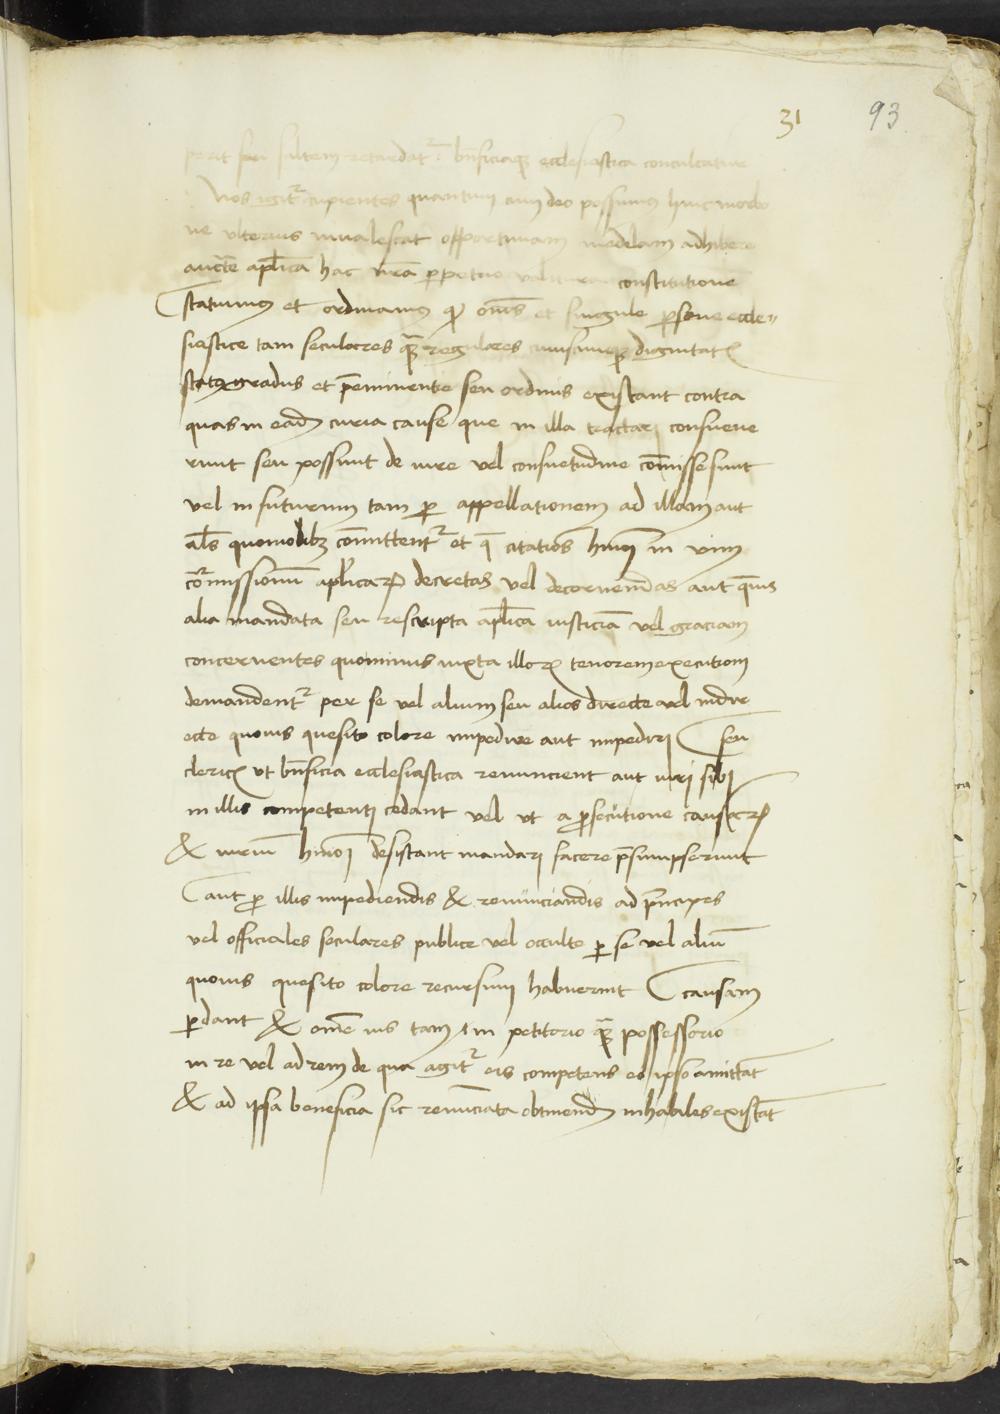 31 93
perit seu saltem retardatr bnficiaqz ecclesiastica conculcantur
Nos igitr cupientes quantum cum deo possumus huic morbo
ne ulterius inualescat opportunam medelam adhibere
aucte aplica hac nra perpetuo ualitura constitutione
statuimus et ordinamus qd oms et singule persone eccle-
siastice tam seculares qz regulares cuiuscunqz dignitatis
status gradus et preminentie seu ordinis existant contra
quas in eadem curia cause que in illa tractari consueue
runt seu possunt de iure uel consuetudine comisse sunt
uel in futurum tam per appellationem ad illam aut
als quomodlibz comittentr et que citatios hmoi in uim
comissionum aplicarum decretas uel decernendas aut quis
alia mandata seu rescripta aplica iusticiam uel graciam
concernentes quominus iuxta illorum tenorem executiom
demandentr per se uel alium seu alios directe uel indir
ecte quouis quesito colore impedire aut impediri seu
clericis ut bnficia ecclesiastica renuncient aut iuri sibi
in illis competenti cedant uel ut a persecutione causarum
& iurium hmoi desistant mandari facere presumpserunt
aut pro illis impediendis & renunciandis ad principes
uel officiales seculares publice uel occulte per se uel alium
quouis quesito colore recursum habuerint causam
perdant & ome ius tam in petitorio qz possessorio
in re uel ad rem de qua agitr eis competens eo ipso amittat
& ad ipsa beneficia sic renunciata obtinend inhabiles existat